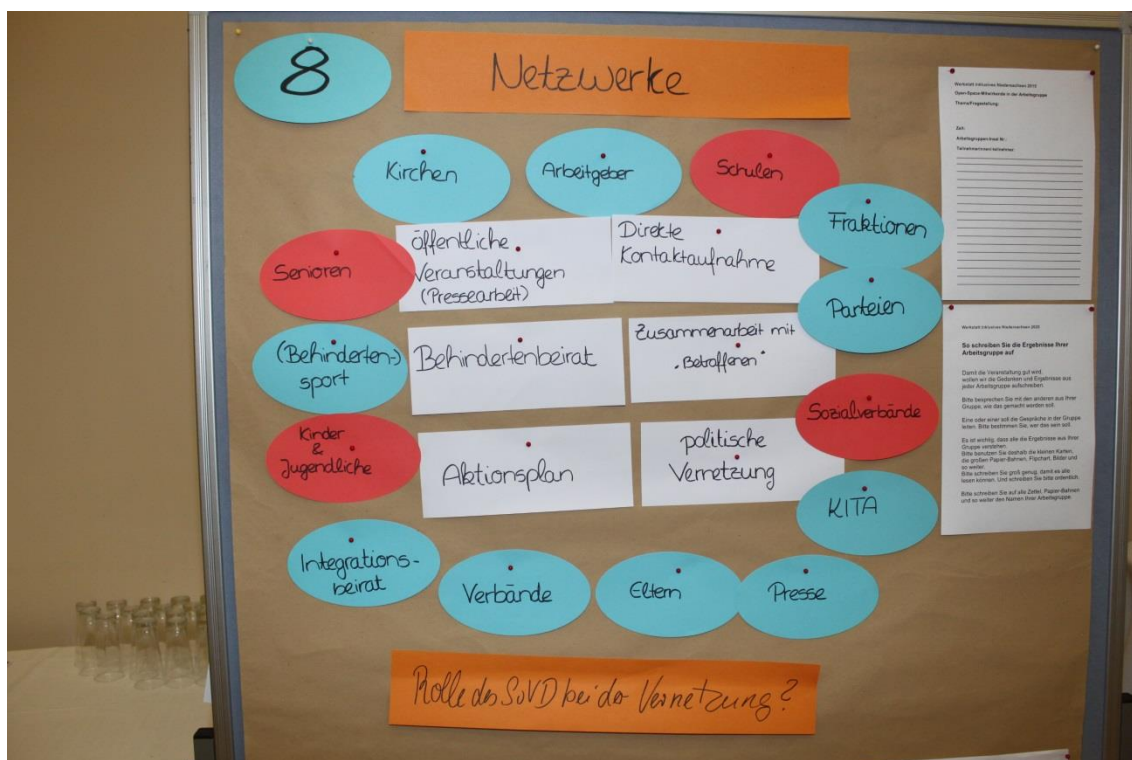 8
Netzwerke
Kirchen
Arbeitgeber
Schulen
Fraktionen
Senioren
öffentliche
Veranstaltungen
(Pressearbeit)
Direkte
Kontaktaufnahme
Parteien
(Behinderten-)
sport
Behindertenbeirat
Zusammenarbeit mit
"Betroffenen"
Sozialverbände
Kinder
&
Jugendliche
Aktionsplan
politische
Vernetzung
KITA
Integrations-
beirat
Verbände
Eltern
Presse
Rolle des SoVD bei der Vernetzung?
Werkstatt Inklusives Niedersachsen 2012
Open-Space-Mitschreibe in der Arbeitsgruppe
Thema/Fragestellung:
Zeit:
Arbeitsgruppen-Insel Nr.:
Teilnehmerinnen/-teilnehmer:
Werkstatt Inklusives Niedersachsen
So schreiben Sie die Ergebnisse Ihrer
Arbeitsgruppe auf
Damit die Veranstaltung gut wird,
wollen wir die Gedanken und Ergebnisse aus
jeder Arbeitsgruppe aufschreiben.
Bitte besprechen Sie mit den anderen aus Ihrer
Gruppe, wie das gemacht werden soll.
Eine oder einer soll die Gespräche in der Gruppe
leiten. Bitte bestimmen Sie, wer das sein soll.
Es ist wichtig, dass alle die Ergebnisse aus Ihrer
Gruppe verstehen.
Bitte benutzen Sie deshalb die kleinen Karten,
die großen Papier-Bahnen, Flipchart, Bilder und
so weiter.
Bitte schreiben Sie groß genug, damit es alle
lesen können. Und schreiben Sie bitte ordentlich.
Bitte schreiben Sie auf alle Zettel, Papier-Bahnen
und so weiter den Namen Ihrer Arbeitsgruppe.